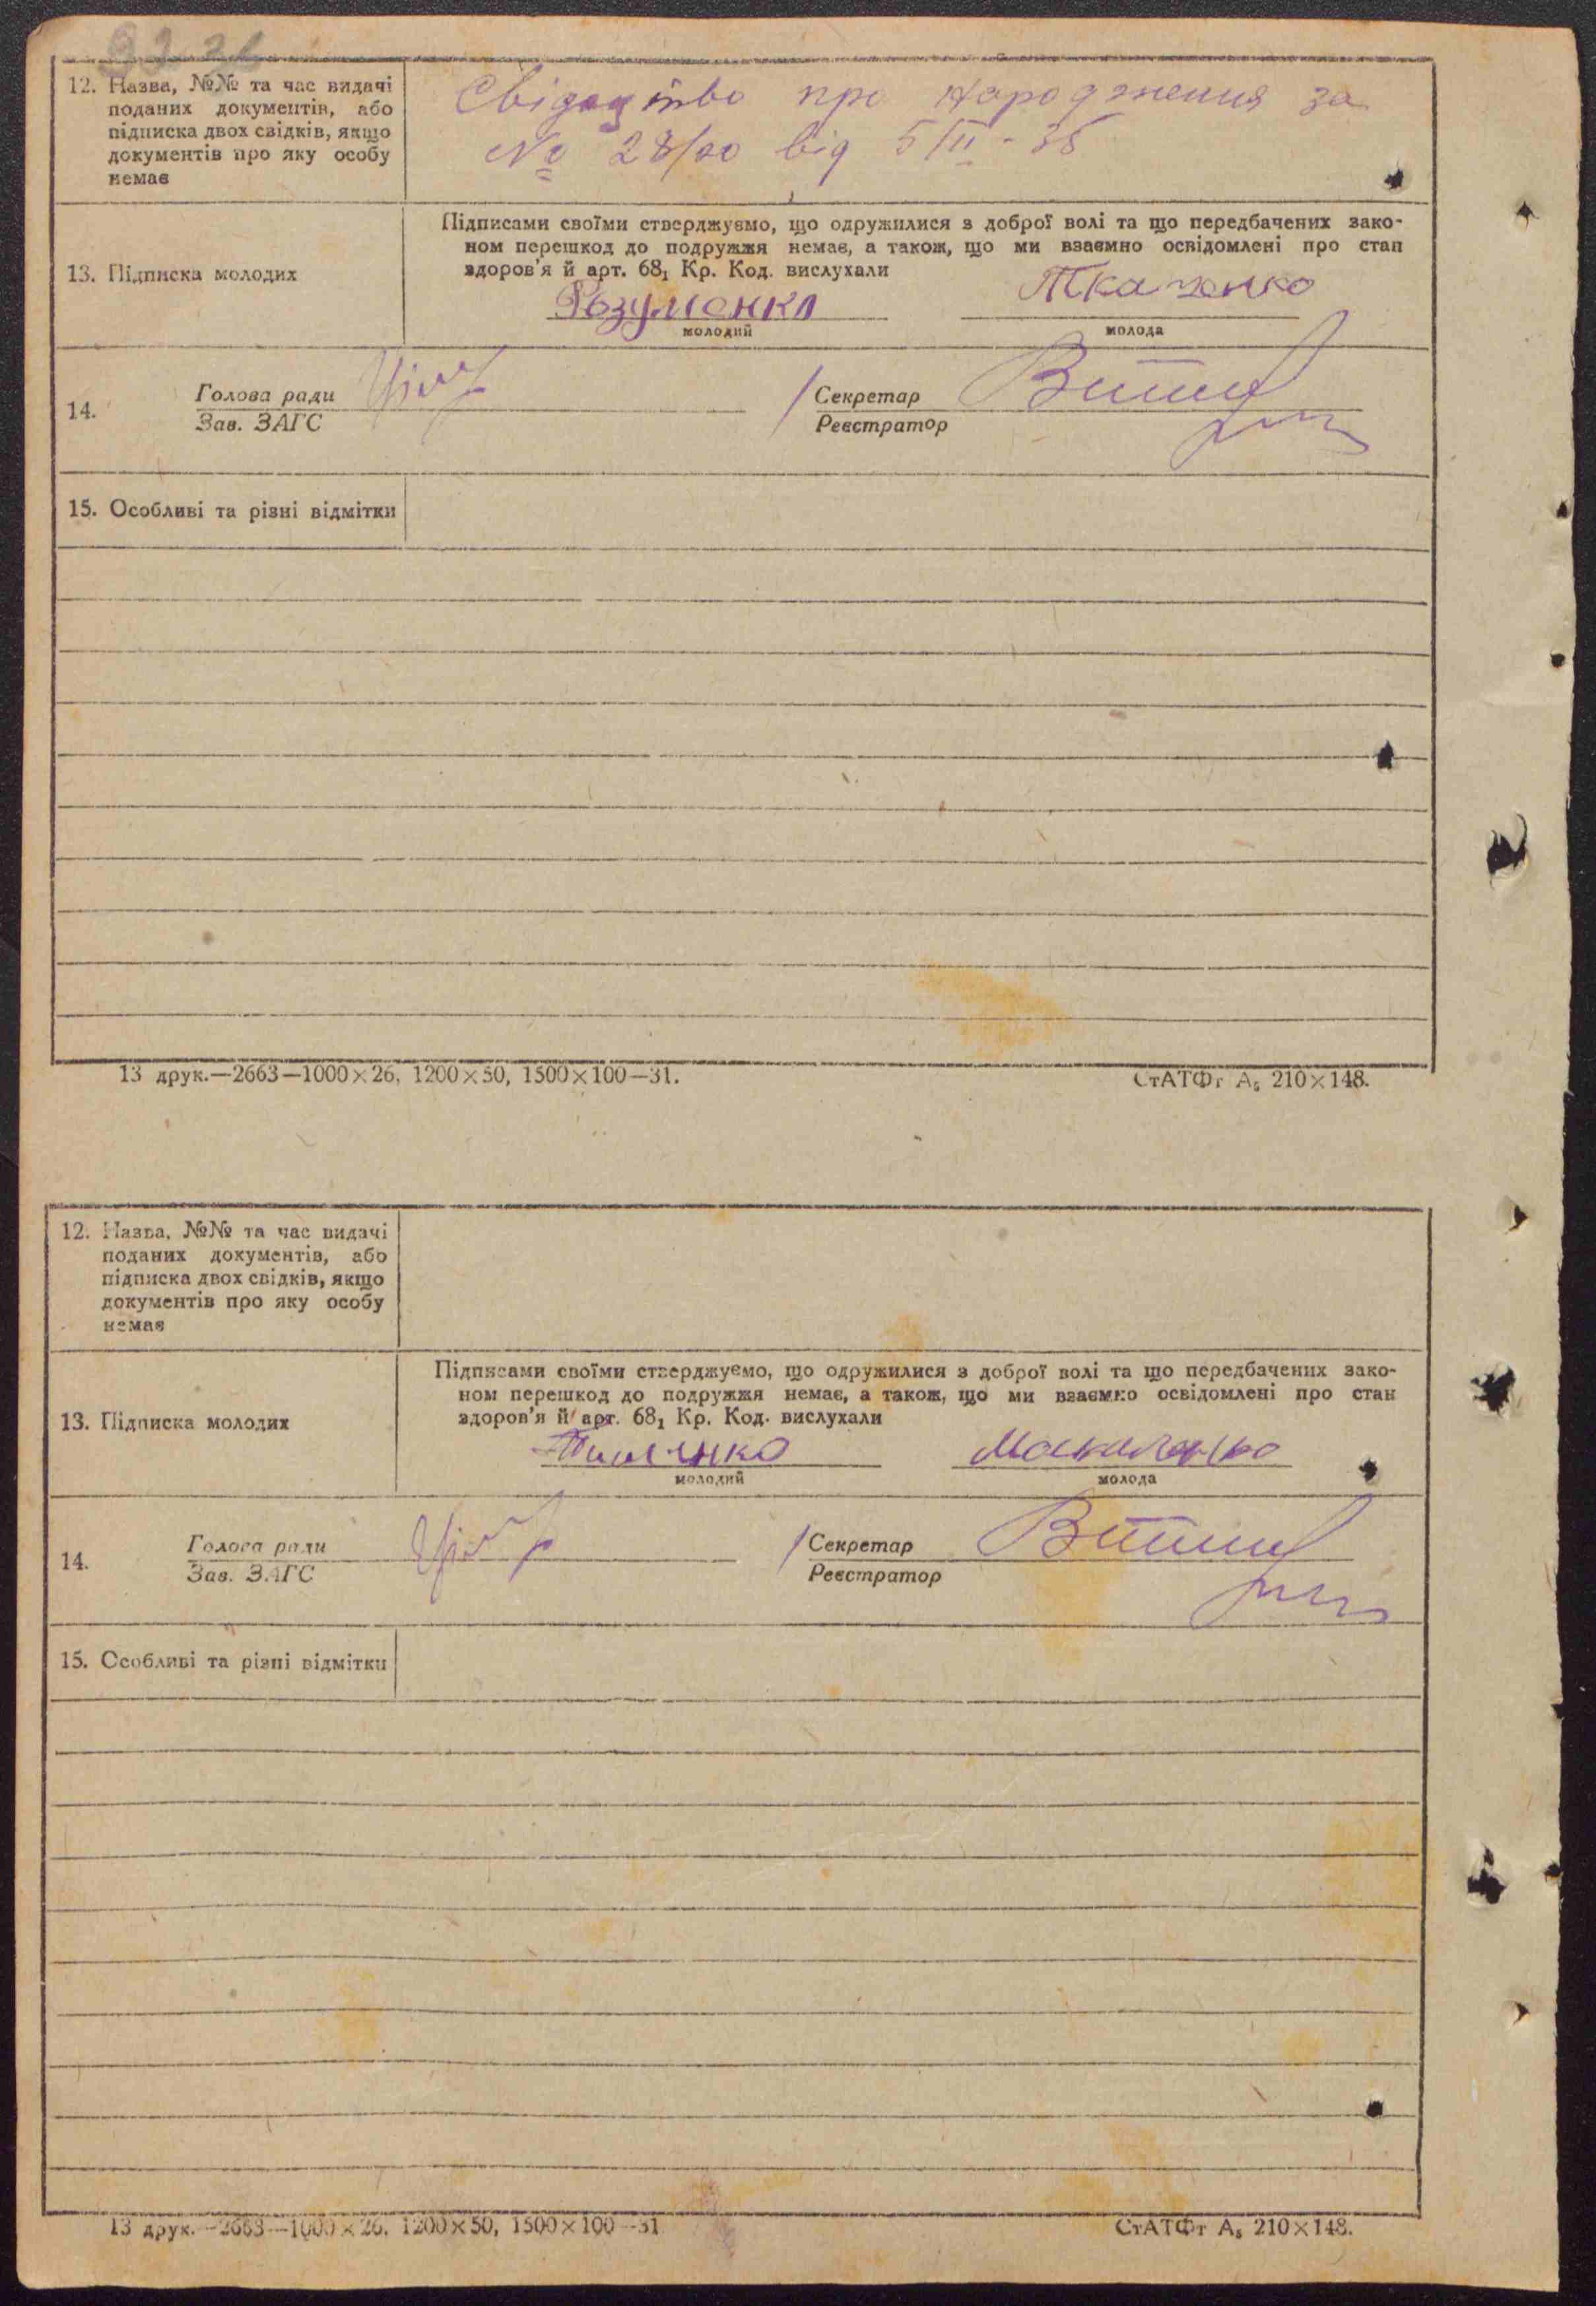 12. Назва, №№ та час видачі
поданих документів, або
підписка двох свідків, якщо
документів про яку особу
немає
Свідоцтво про народження за
№ 28/00 від 5/II - 35
13. Підписка молодих
Підписами своїми стверджуємо, що одружилися з доброї волі та що передбачених зако-
ном перешкод до подружжя немає, а також, що ми взаємно освідомлені про стан
здоров'я й арт. 68₁ Кр. Код. вислухали
Розуменко
Ткаченко
молодий
молода
14.
Голова ради
Зав. ЗАГС
Секретар
Реєстратор
15. Особливі та різні відмітки
13 друк.—2663—1000×26, 1200×50, 1500×100—31.
СтАТФт А₅ 210×148.
12. Назва, №№ та час видачі
поданих документів, або
підписка двох свідків, якщо
документів про яку особу
немає
13. Підписка молодих
Підписами своїми стверджуємо, що одружилися з доброї волі та що передбачених зако-
ном перешкод до подружжя немає, а також, що ми взаємно освідомлені про стан
здоров'я й арт. 68₁ Кр. Код. вислухали
молодий
молода
14.
Голова ради
Зав. ЗАГС
Секретар
Реєстратор
15. Особливі та різні відмітки
13 друк.—2663—1000×26, 1200×50, 1500×100—31
СтАТФт А₅ 210×148.